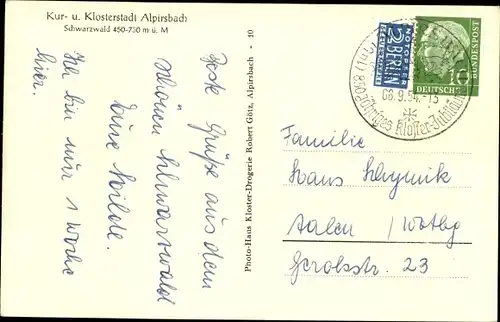 Kur- u. Klosterstadt Alpirsbach
Schwarzwald 450-750 m ü. M
Photo-Haus Kloster-Drogerie Robert Götz, Alpirsbach - 10
Beste Grüße aus dem
schönen Schwarzwald
Eure Hilde.
Ich bin nur 1 Woche
hier.
NOTOPFER
2 BERLIN
STEUERMARKE
DEUTSCHE
BUNDESPOST
10
850jähriges Kloster-Jubiläum
08.9.54.-15
Familie
Hans
Aalen / Wttbg
Gerokstr. 23